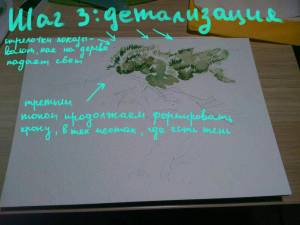 Шаг 3: детализация
стрелочки показы-
вают, как на дерево
падает свет
третьим
тоном продолжаем формировать
крону, в тех местах, где есть тени